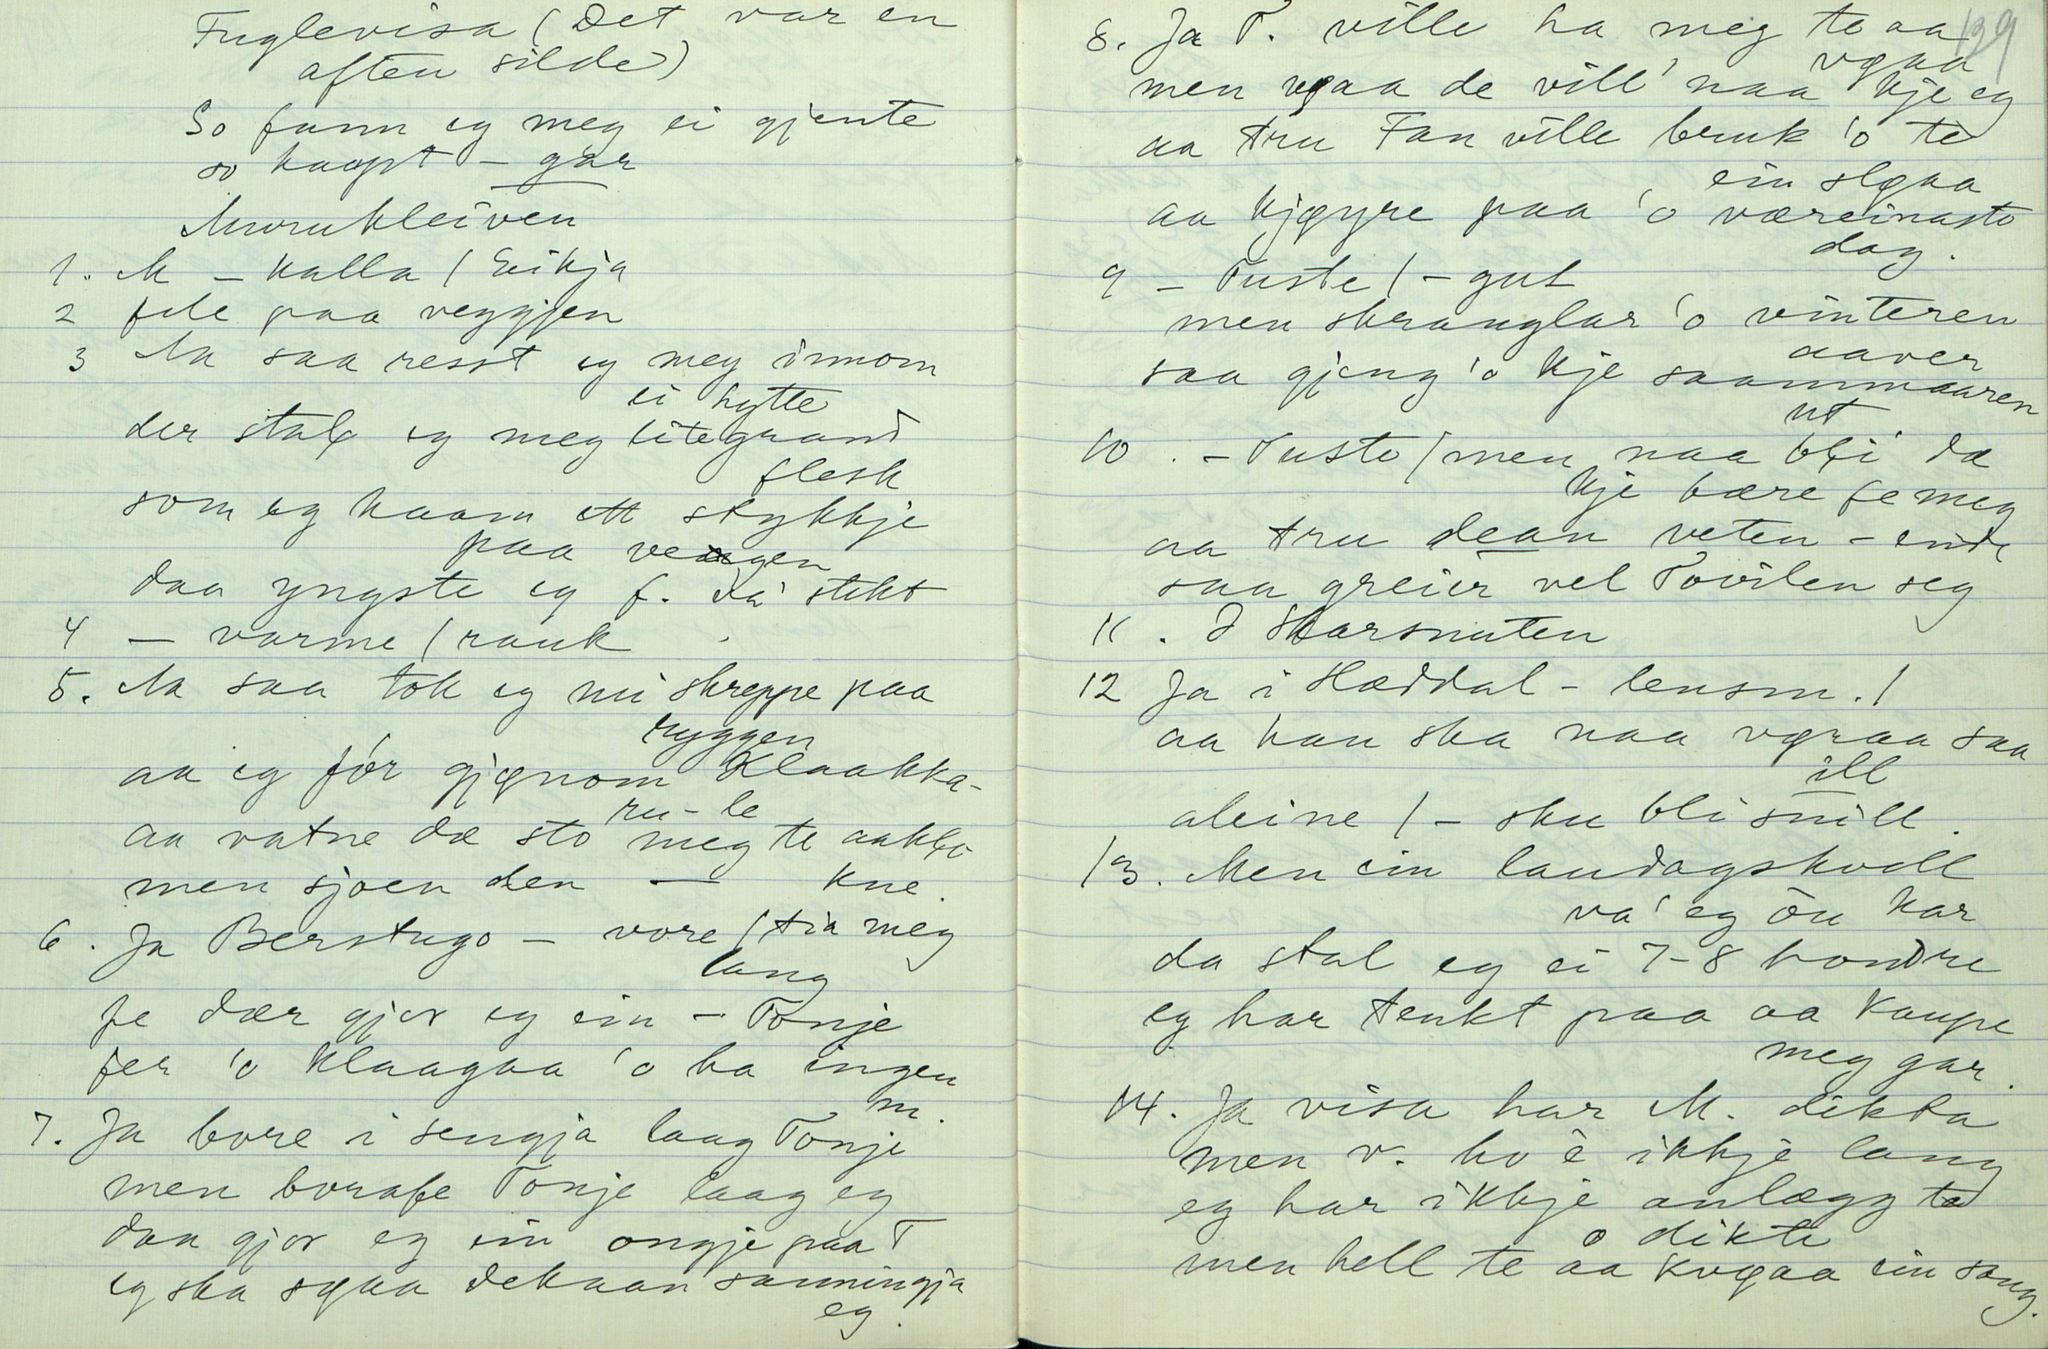 Fuglevisa (Det var en
aften silde)
So fann eg meg ei gjente
so haapt - gar
Murukleiven
1. M - kalla / Eikja
2 fele paa veggjen
3 Aa saa resst eg meg innom
ei hytte
der stal eg meg litegrand
flesk
som eg haam ett stykkje
paa vengen
daa yngste eg f. da' stekt
4 - varme / rauk
5. Aa saa tok eg mi skreppe paa
ryggen
aa eg fór gjønom Klaakka-
ru-le
aa vatne dæ sto meg te aakle
men sjoen den — kne.
6. Ja Berstugo - vore / tia meg
lang
fe dær gjor eg ein - Tonje
fer 'o klaagaa 'o ha ingen
m.
7. Ja bore i sengja laag Tonje
men borafe Tonje laag eg
daa gjor eg ein ongje paa T
eg ska sgaa dekaan sanningja
eg.
139
8. Ja T. ville ha meg te aa
vgaa
men vgaa de vill' naa kje eg
aa tru Fan ville bruk 'o te
ein slgaa
aa kjøyre paa 'o væreinaste
dag.
9 - Tuste / - gut
men skranglar 'o vinteren
aaver
saa gjeng 'o kje saammaaren
ut
10. - Tuste / men naa bli dæ
kje bære fe meg
aa tru dean veten - ende
saa greier vel Tovilen seg
11. I Skarsnuten
12 Ja i Hæddal - lensm. /
aa han ska naa vgraa saa
ill
aleine / - sku bli snill.
13. Men ein laudagskvell
va' eg ôu kar
da stal eg ei 7-8 hondre
eg har tenkt paa aa kaupe
meg gar.
14. Ja visa har M. dikta
men v. ho è ikkje lang
eg har ikkje anlægg te
o dikte
men hell te åa kvgaa ein song.